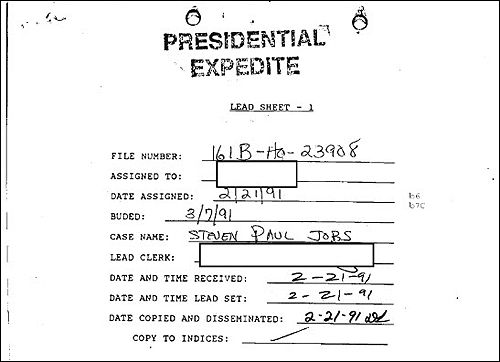 PRESIDENTIAL
EXPEDITE
LEAD SHEET - 1
FILE NUMBER: 161B-HQ-23908
ASSIGNED TO:
DATE ASSIGNED: 2/21/91
b6
b7C
BUDED: 3/7/91
CASE NAME: STEVEN PAUL JOBS
LEAD CLERK:
DATE AND TIME RECEIVED: 2-21-91
DATE AND TIME LEAD SET: 2-21-91
DATE COPIED AND DISSEMINATED: 2-21-91
COPY TO INDICES: